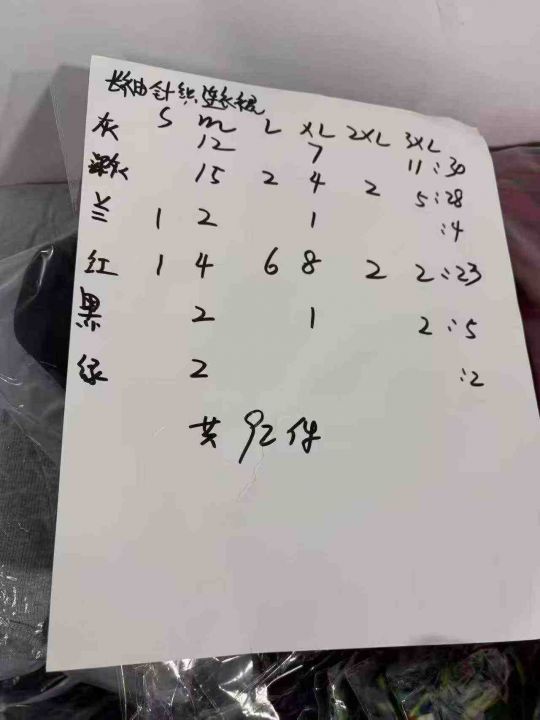 长袖针织连衣裙
灰 S M L XL 2XL 3XL
12 7 11:30
15 2 4 2 5:28
兰 1 2 1 :4
红 1 4 6 8 2 2:23
黑 2 1 2:5
绿 2 :2
共92件